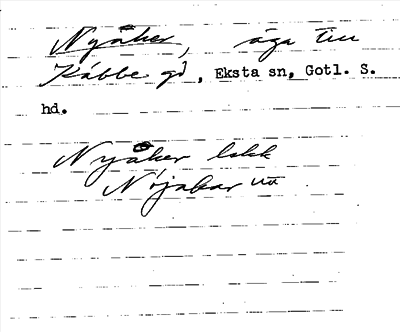 Nyåker, äga till
Kåbbe gd, Eksta sn, Gotl. S.
hd.
Nyåker
Nöjakar